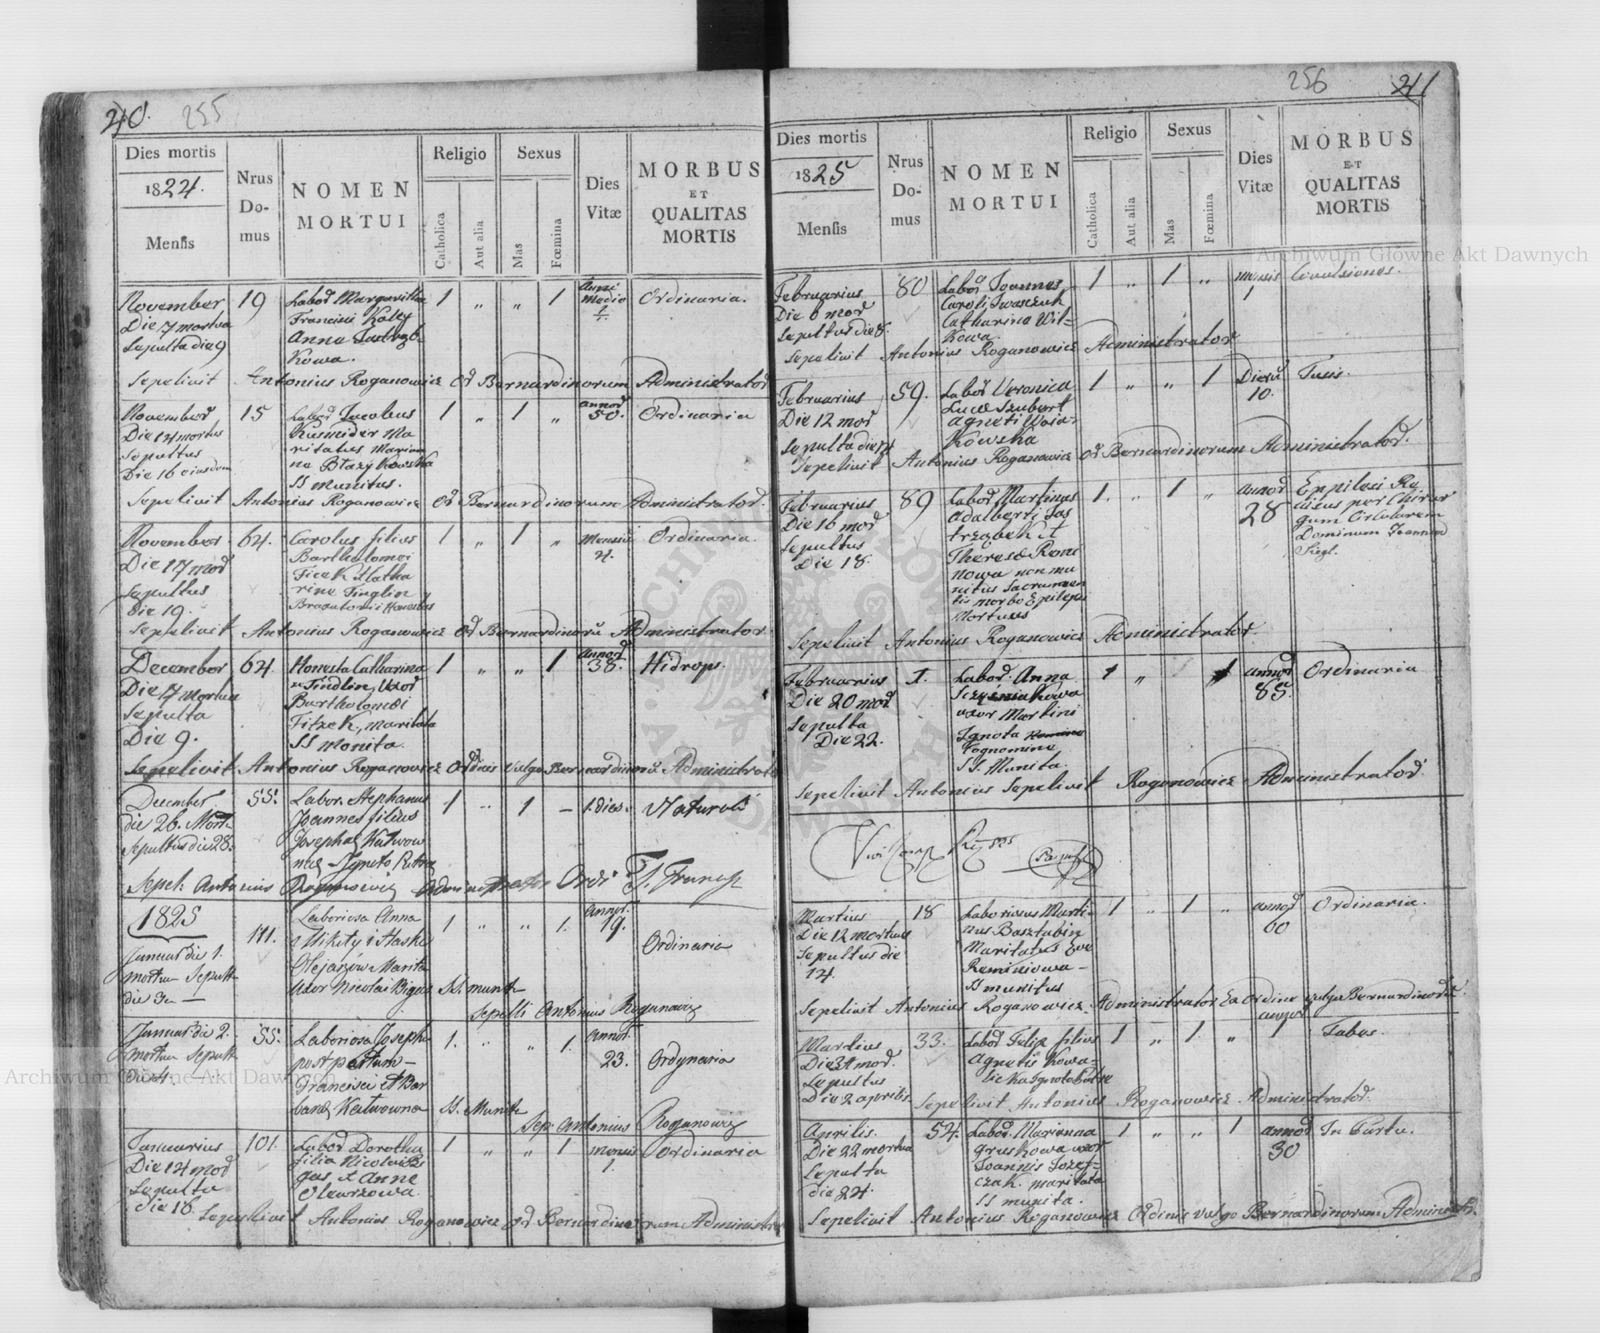 40. 255
Dies mortis
1824.
Mensis
Nrus
Do-
mus
NOMEN
MORTUI
Religio
Catholica
Aut alia
Sexus
Mas
Fœmina
Dies
Vitæ
MORBUS
ET
QUALITAS
MORTIS
November 19 Labor Margaritha 1 „ „ 1 Anni Ordinaria.
Die 7 mortua Francisci Koley Medio
Sepulta die 9 Anna
kowa.
Sepelivit Antonius Roganowicz Od Bernardinorum Administrator
Novembr 15 Labor Jacobus 1 „ 1 „ annor 50. Ordinaria
Die 14 mortus Kusneider Ma
Sepultus ritatus Marian
Die 16 eiusdem na Błazykowska
SS munitus.
Sepelivit Antonius Roganowicz Od Bernardinorum Administrator.
November 64. Carolus filius 1 „ 1 „ Mensiu Ordinaria.
Die 17 mor Bartholomei 4.
Sepultus Ficek et Catha
die 19. rine Tindlin
Sepelivit Antonius Roganowicz Od Bernardinorū Administrator
December 64. Honesta Catharina 1 „ „ 1 annor 38. Hidrops.
Die 7 mortua Tindlin, Uxor
Sepulta Bartholomei
Die 9. Fitzek, maritata
SS monita.
Sepelivit Antonius Roganowicz Ordinis vulgo Bernardinorū Administrat
December 55. Labor. Stephanus 1 „ 1 – 1. dies. Naturali
die 26. Mort. Joannes filius
Sepultus die 28. Josepha
Ignoto Patre
Sepel. Antonius Roganowicz Administrator Ordi
1825
111. Laboriosa Anna 1 „ „ 1. Annor. 19. Ordinaria
Januar die 1. Mikity i Naski
mortua Sepulta Olejarzów Marita
die 3a — Uxor Nicolai Bigas SS. munita
Sepelli Antonius Roganowicz
Januar die 2. 55. Laboriosa Joseph 1. „ „ 1. Annor. 23. Ordynaria
mortua Sepulta post partum –
die 4. — Francisci et Bar
SS. Munita
Sep. Antonius Roganowicz
Januarius 101. Labor Dorothea 1 „ „ 1 mensis 1. Ordinaria
Die 14 mor filia Nicolai Bi
Sepulta gas et Anne
die 16. Olewrzowa.
Sepelivit Antonius Roganowicz Od Bernardinorum Administra
256 41
Dies mortis
1825
Mensis
Nrus
Do-
mus
NOMEN
MORTUI
Religio
Catholica
Aut alia
Sexus
Mas
Fœmina
Dies
Vitæ
MORBUS
ET
QUALITAS
MORTIS
Februarius 80 Labor Joannes 1 „ 1 „ mensis 1 Convulsiones.
Die 6 mor Caroli Iwaszuk
Sepultus die 8. Catharina Wil-
kowa
Sepelivit Antonius Roganowicz Administrator
Februarius 59. Labor Veronica 1 „ „ 1 Dierū 10. Tusis.
Die 12 mor Luce Szubart
Sepulta die 14 Agneti Woia-
kowska
Sepelivit Antonius Roganowicz Od Bernardinorum Administrator.
Februarius 89 Labor Martinus 1. „ 1 „ annor 28 Eppilesi
Die 16 mor Adalberti Jas per Chirur
Sepultus trząbek et gum Circularem
Die 18. Therese Roma Dominum Joannem
nowa non mu Siegl.
nitus Sacramen
tis morbo Epileps
Mortuus
Sepelivit Antonius Roganowicz Administrator.
Februarius 1. Labor. Anna 1 „ 1 annor 85. Ordinaria
Die 20 mor Szczesniakowa
Sepulta uxor Martini
Die 22. Ignota
Cognomine
SS. Munita.
Sepelivit Antonius Sepelivit Roganowicz Administrator.
Martius 18 Laboriosus Marti- 1 „ 1 „ annor 60 Ordinaria.
Die 12 mortuus nus Basztubin
Sepultus die Maritatus Eve
14. Reminiowa –
SS munitus
Sepelivit Antonius Roganowicz. Administrator Ex Ordine vulgo Bernardinorū.
Martius 33. Labor Felix filius 1 „ 1 „ annor 1 Tabes.
Die 31 mor. Agnetis Kowa-
Sepultus licka Ignoto Patre
Die 2 aprilis
Sepelivit Antonius Roganowicz Administrator.
Aprilis. 54. Labor. Marianna 1 „ „ 1 annor 30 In Partu.
Die 22 mortua Gruskowa uxor
Sepulta Joannis Jozef-
die 24. czak. maritata
SS munita.
Sepelivit Antonius Roganowicz Ordinis vulgo Bernardinorum Administr.
Archiwum Główne Akt Dawnych
Archiwum Główne Akt Dawnych